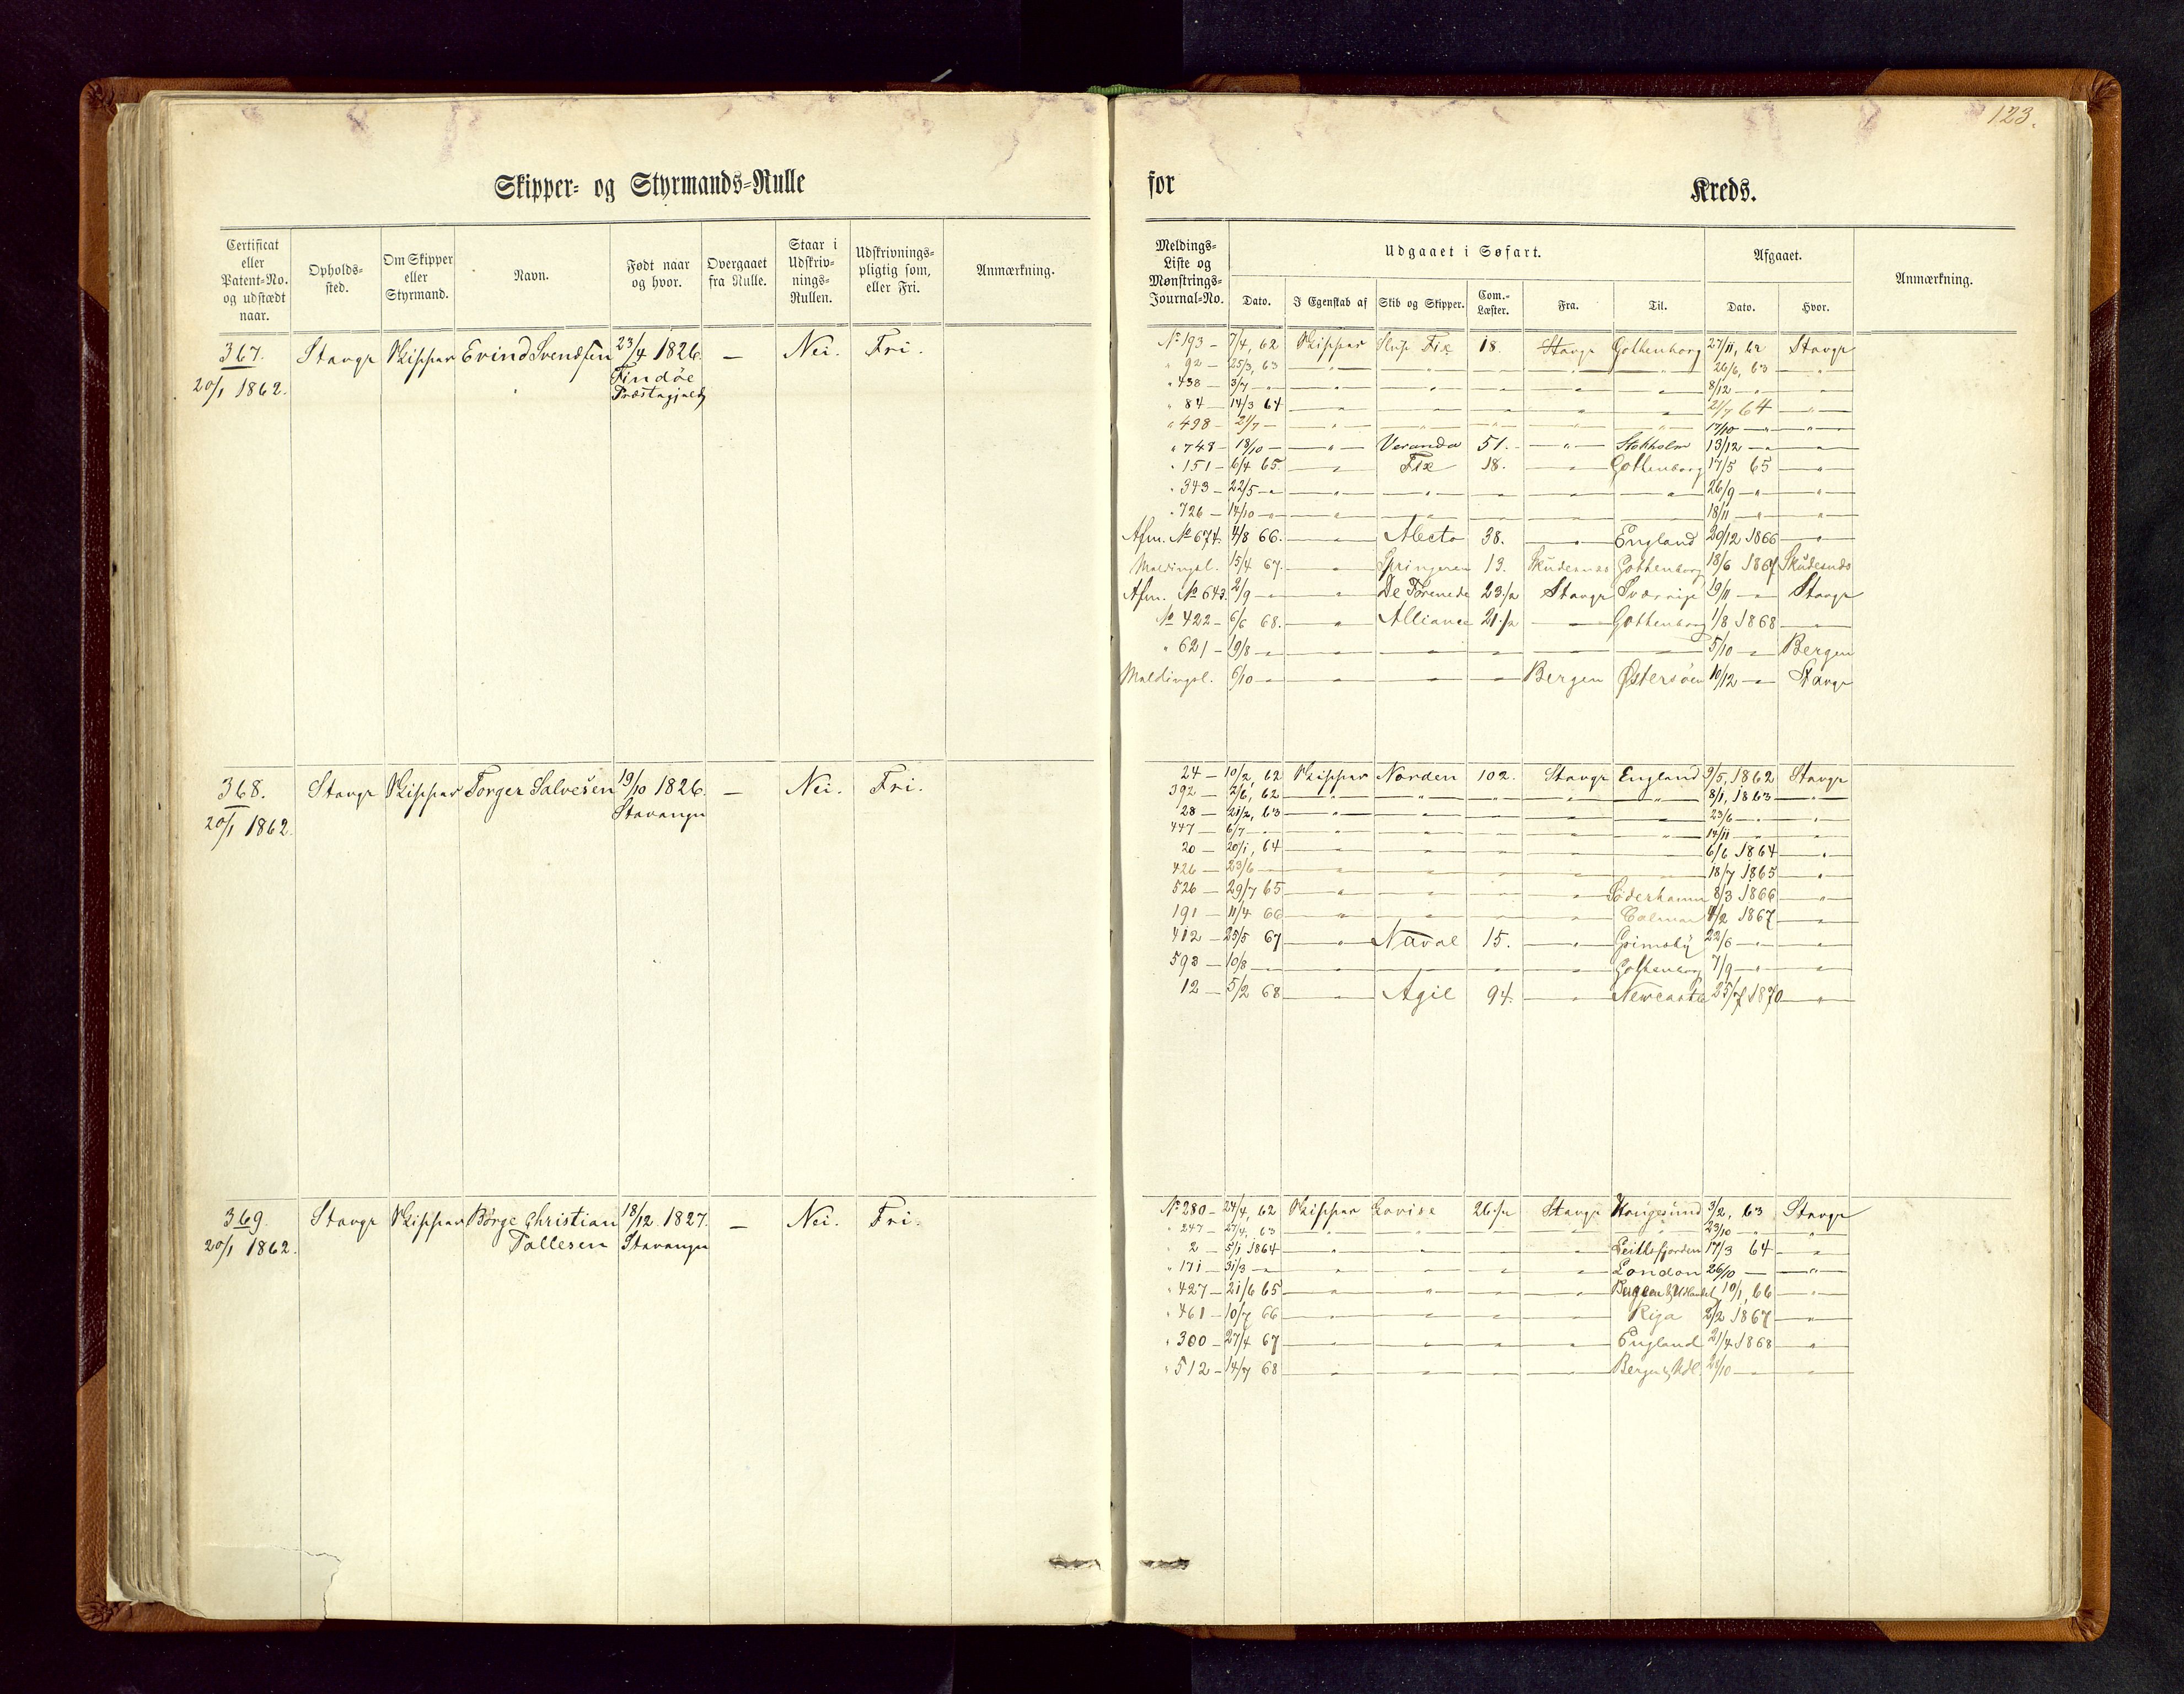 123.
Skipper- og Styrmands-Rulle
for
Kreds.
Certificat eller Patent-No. og udstædt naar.
Opholds-sted.
Om Skipper eller Styrmand.
Navn.
Født naar og hvor.
Overgaaet fra Rulle.
Staar i Udskriv-nings-Rullen.
Udskrivnings-pligtig som, eller Fri.
Anmærkning.
Meldings-Liste og Mønstrings-Journal-No.
Udgaaet i Søfart.
Dato.
I Egenskab af
Skib og Skipper.
Com.-Læster.
Fra.
Til.
Afgaaet.
Dato.
Hvor.
Anmærkning.
367. Stavgr Skipper Evind Svendsen 23/4 1826. — Nei. Fri.
20/1 1862. Findöe
Præstegjeld
No 193 — 7/4, 62 Skipper Slup Fix 18. Stavgr Gothenborg 27/11, 62 Stavgr
" 92 — 25/3, 63 — " — " — " — " — " 26/6, 63 — "
" 438 — 3/7 — " — " — " — " — " — " 8/12 — " — "
" 84 — 14/3 64 — " — " — " — " — " 21/7 64 — " —
" 498 — 21/7 — " — " — " — " — " 17/10 — " — " —
" 748 — 18/10 — — " — Veranda 51. — " — Stokholm 13/12 — " — "
" 151 — 6/4 65. — " Fix 18. — " Gothenborg 17/5 65 — "
" 343 — 22/5 — " — " — " — " — " — " 26/9 — " — "
" 726 — 14/10 — " — " — " — " — " 18/11 — " — "
Afm. No 674. 4/8 66. — " Alecto 38. — " England 29/12 1866 — "
Meldingsl. 15/4 67. — " Springeren 13. Skudesnæs Gothenborg 18/6 1867 Skudesnæs
Afm. No 643. 2/9 — " — " De Forenede 23 1/2 Stavgr Sverrige 19/11 — " Stavgr
No 422 — 6/6 68. — " Alliance 21 1/2 — " Gothenborg 1/8 1868 — "
" 621 — 19/8 — " — " — " — " — " — 5/10 — " Bergen
Meldingsl. 6/10 — " — " — " — " Bergen Østersöen 10/12 — " Stavgr
368. Stavgr Skipper Torger Salvesen 19/10 1826. — Nei. Fri.
20/1 1862. Stavanger
24 — 10/2, 62 Skipper Norden 102. Stavgr England 9/5, 1862 Stavgr
392 — 2/6, 62 — " — " — " — " — " 8/1, 1863 — "
28 — 21/2, 63 — " — " — " — " — 23/6 — " — "
447 — 6/7 — " — " — " — " — " — " 14/11 — " — "
20 — 20/1, 64 — " — " — " — " 6/6 1864 — "
426 — 23/6 — " — " — " — " — 18/7 1865 — "
526 — 29/7 65 — " — " — " — " Söderhamn 8/3 1866 — "
191 — 11/4 66 — " — " — " — " Calmar 4/2 1867 — "
412 — 25/5 67 — " Naval 15. — " Grimsby 22/6 — " — "
593 — 10/8 — " — " — " — " Gothenborg 7/9 — " — "
12 — 5/2 68 — " Agil 94. — " Newcastle 25/7 1870 — "
369. Stavgr Skipper Börge Christian 18/12 1827. — Nei. Fri.
20/1 1862. Tallesen Stavanger
No 280 — 24/4, 62 Skipper Lovise 26 1/2 Stavgr Haugesund 3/2, 63 Stavgr
" 247 — 27/4, 63 — " — " — " — " — " 23/10 — " — "
" 2 — 5/1 1864 — " — " — " — " Leithsfjorden 17/3 64 — "
" 171 — 31/3 — " — " — " — " — " London 26/10 — — " —
" 427 — 21/6 65 — " — " — " — " Bergen & Udlandet 10/1, 66 — "
" 461 — 10/7 66 — " — " — " — " Riga 2/2 1867 — "
" 300 — 27/4 67 — " — " — " — " England 21/4 1868 — "
" 512 — 14/7 68 — " — " — " — " Bergen & Udl. 23/10 — " — "